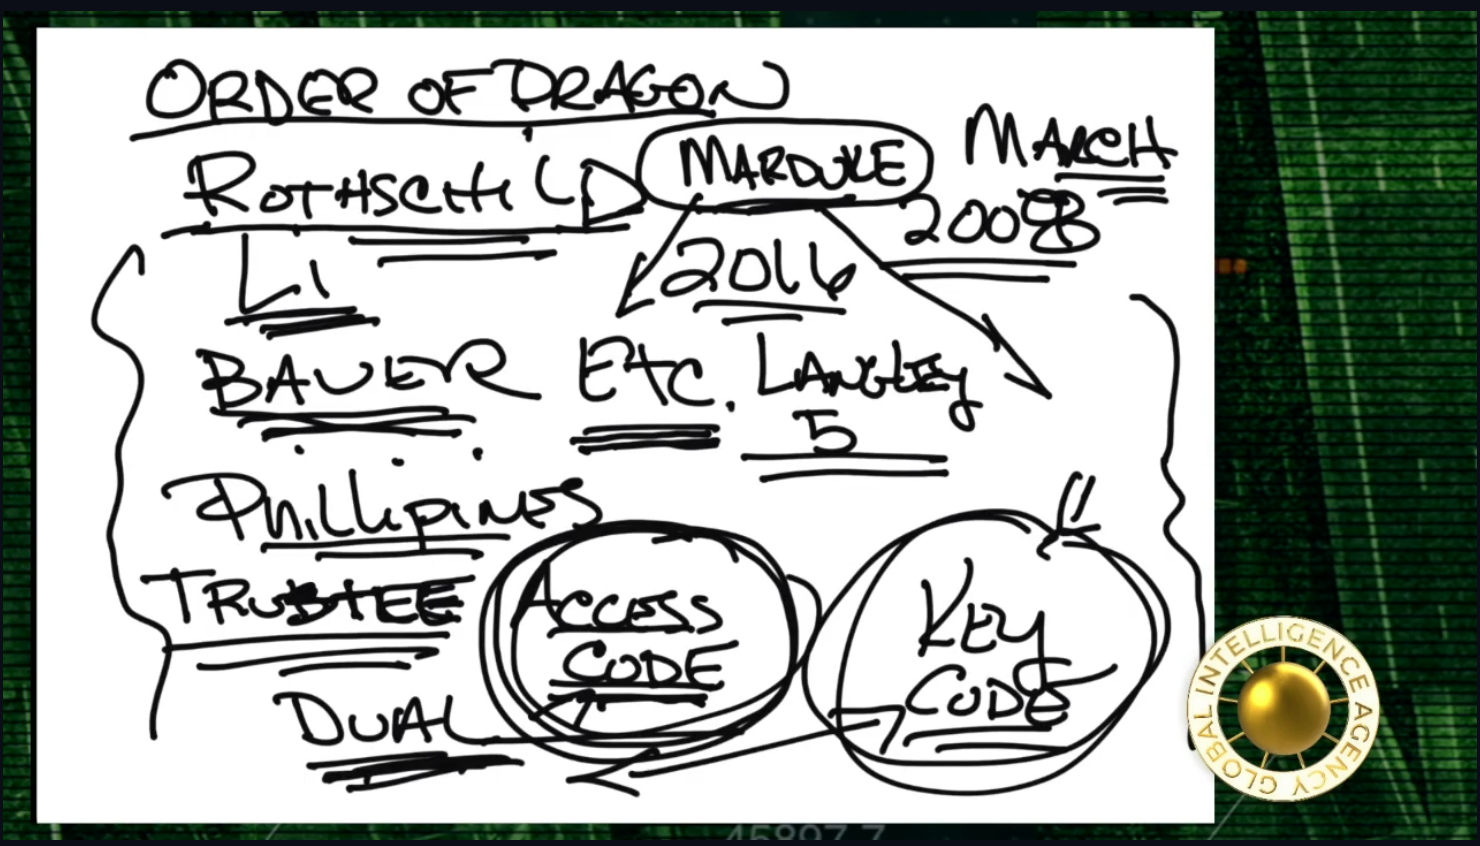 ORDER OF DRAGON
ROTHSCHILD MARDUKE MARCH
2008
LI 2016
BAUER ETC. LANGLEY
5
PHILLIPINES
TRUSTEE ACCESS KEY
CODE CODE
DUAL
GLOBAL INTELLIGENCE AGENCY
45897.7